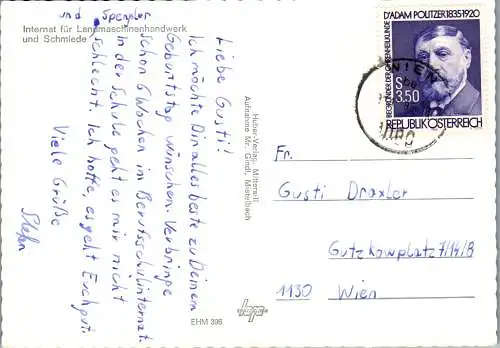 und Spengler
Internat für Landmaschinenhandwerk
und Schmiede
Liebe Gusti!
Ich möchte Dir alles beste zu Deinen
Geburtstag wünschen. Verbringe
schon 6 Wochen in Berufsschulinternat.
In der Schule geht es mir nicht
schlecht. Ich hoffe, es geht Euch gut.
Viele Grüße
Stefan
Huber-Verlag, Mittersill
Aufnahme Mr. Gindl, Mistelbach
EHM 396
D'ADAM POLITZER 1835-1920
BEGRÜNDER DER OHRENHEILKUNDE
S 3.50
REPUBLIK ÖSTERREICH
WIEN
Fr.
Gusti Draxler
Gutzkowplatz 7/14/8
1130 Wien